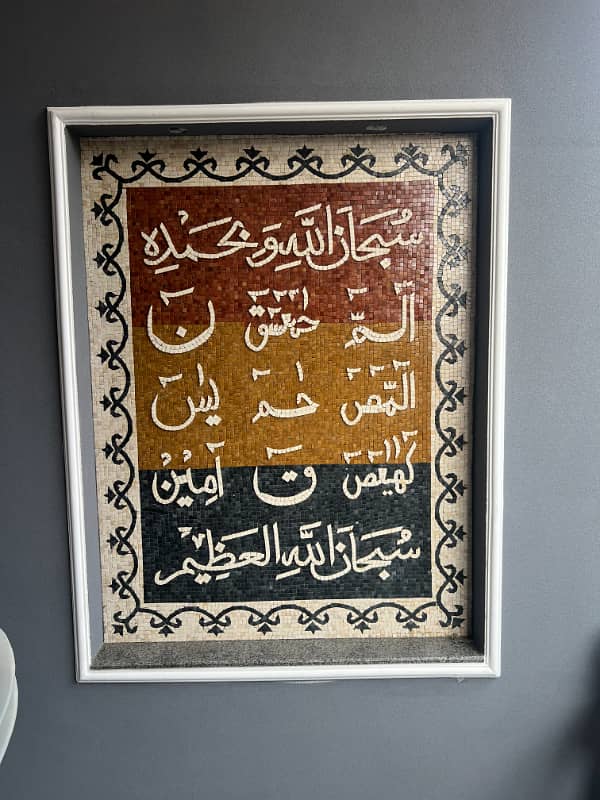 سُبْحَانَ اللّٰهِ وَبِحَمْدِهِ
الٓمّٓ حٰمٓعٓسٓقٓ نٓ
الٓمّٓصٓ حٰمٓ يٰسٓ
كٓهٰيٰعٓصٓ قٓ آمِيْنْ
سُبْحَانَ اللّٰهِ الْعَظِيْمِ